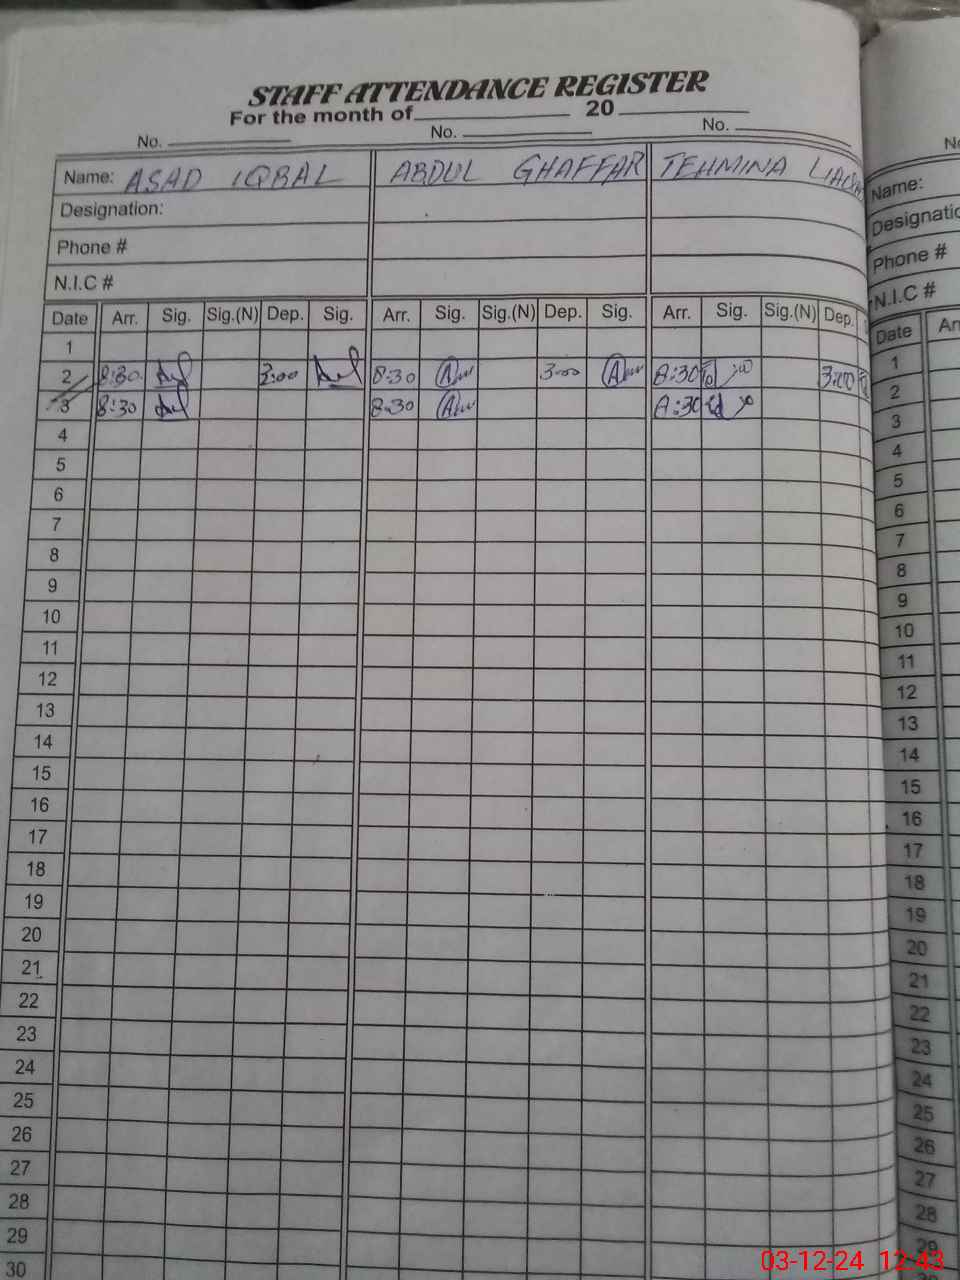 STAFF ATTENDANCE REGISTER
For the month of 20
No. No. No.
Name: ASAD IQBAL ABDUL GHAFFAR TEHMINA
Designation:
Phone #
N.I.C #
Date Arr. Sig. Sig.(N) Dep. Sig. Arr. Sig. Sig.(N) Dep. Sig. Arr. Sig. Sig.(N) Dep.
1
2 8:30 3:00 8:30 3:00 8:30 3:00
3 8:30 8:30 8:30
4
5
6
7
8
9
10
11
12
13
14
15
16
17
18
19
20
21
22
23
24
25
26
27
28
29
30
Name:
Phone #
N.I.C #
Date
1
2
3
4
5
6
7
8
9
10
11
12
13
14
15
16
17
18
19
20
21
22
23
24
25
26
27
28
29
03-12-24 12:43